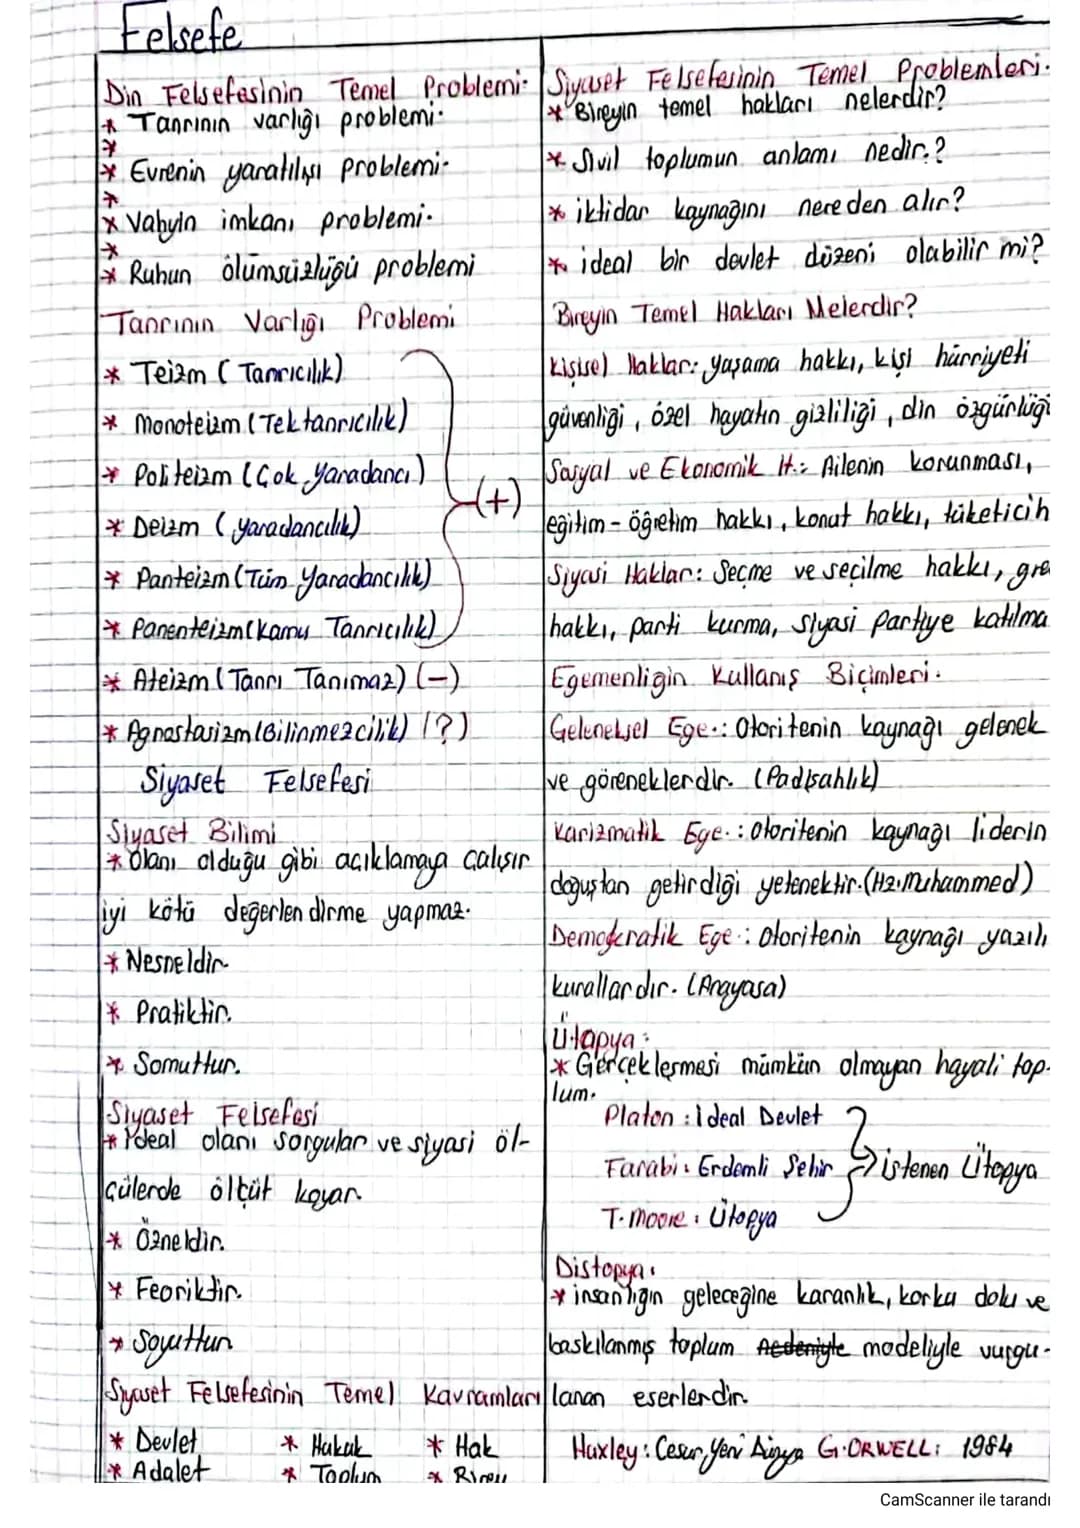 Felsefe
Din Felsefesinin Temel Problemi.
* Tanrının varlığı problemi.
*
* Evrenin yaratılışı problemi.
*
* Vahyin imkanı problemi.
*
* Ruhun ölümsüzlüğü problemi
Tanrının Varlığı Problemi
* Teizm (Tanrıcılık)
* Monoteizm (Tek tanrıcılık)
* Politeizm (Çok yaradancı)
* Deizm (yaradancılık)
* Panteizm (Tüm Yaradancılık)
* Panenteizm (Kamu Tanrıcılık)
(+)
* Ateizm (Tanrı Tanımaz) (-)
* Agnostasizm (Bilinmezcilik) (?)
Siyaset Felsefesi
Siyaset Bilimi
* Olanı olduğu gibi açıklamaya çalışır
iyi kötü değerlendirme yapmaz.
* Nesneldir.
* Pratiktir.
* Somuttur.
Siyaset Felsefesi
* İdeal olanı sorgular ve siyasi öl-
çülerde ölçüt koyar.
* Özneldir.
* Feoriktir.
* Soyuttur.
Siyaset Felsefesinin Temel Kavramları
* Devlet * Hukuk * Hak
* Adalet * Toplum * Birey
Siyaset Felsefesinin Temel Problemleri.
* Bireyin temel hakları nelerdir?
* Sivil toplumun anlamı nedir.?
* iktidar kaynağını nereden alır?
* ideal bir devlet düzeni olabilir mi?
Bireyin Temel Hakları Nelerdir?
Kişisel Haklar: yaşama hakkı, kişi hürriyeti
güvenliği, özel hayatın gizliliği, din özgürlüğü
Sosyal ve Ekonomik H.: Ailenin korunması,
eğitim - öğretim hakkı, konut hakkı, tüketicih
Siyasi Haklar: Seçme ve seçilme hakkı, gre
hakkı, parti kurma, siyasi partiye katılma
Egemenliğin Kullanış Biçimleri.
Geleneksel Ege.: Otoritenin kaynağı gelenek
ve göreneklerdir. (Padişahlık)
Karizmatik Ege.: Otoritenin kaynağı liderin
doğuştan getirdiği yetenektir. (Hz. Muhammed)
Demokratik Ege.: Otoritenin kaynağı yazılı
kurallardır. (Anayasa)
Ütopya:
* Gerçekleşmesi mümkün olmayan hayali top-
lum.
Platon: İdeal Devlet
Farabi: Erdemli Şehir
T. Moore: Ütopya
istenen Ütopya
Distopya:
* insanlığın geleceğine karanlık, korku dolu ve
baskılanmış toplum modeliyle vurgu-
lanan eserlerdir.
Huxley: Cesur Yeni Dünya G. ORWELL: 1984
CamScanner ile tarandı